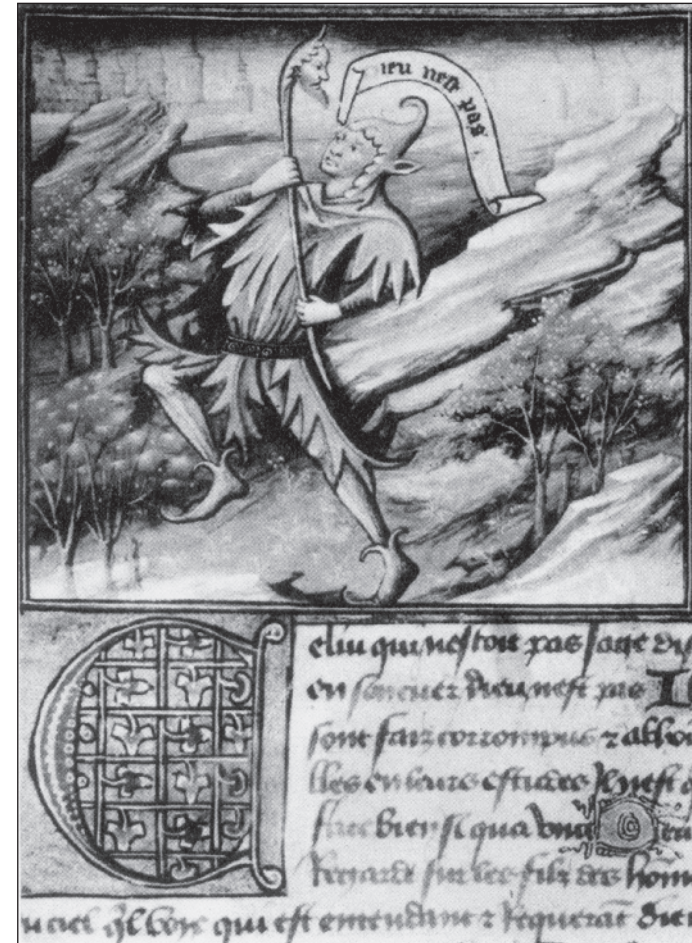 ieu nest pas
Celui qui nestoit pas sage di
en son cuer dieu nest pas
sont fais corrompus ⁊ abho
lles en leurs estudes Il nest
face bien si qua
Regarde sur les filz des hom
u ciel qil voie qui est entendant ⁊ requerāt dieu